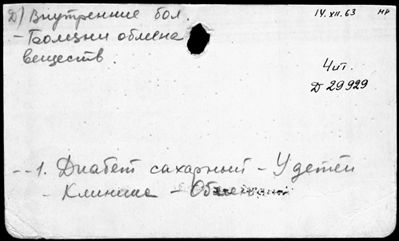 Д) Внутренние бол.
14.XII.63 нр
- Болезни обмена
веществ.
Чит.
Д 29929
-- 1. Диабет сахарный - У детей
- Клиника -